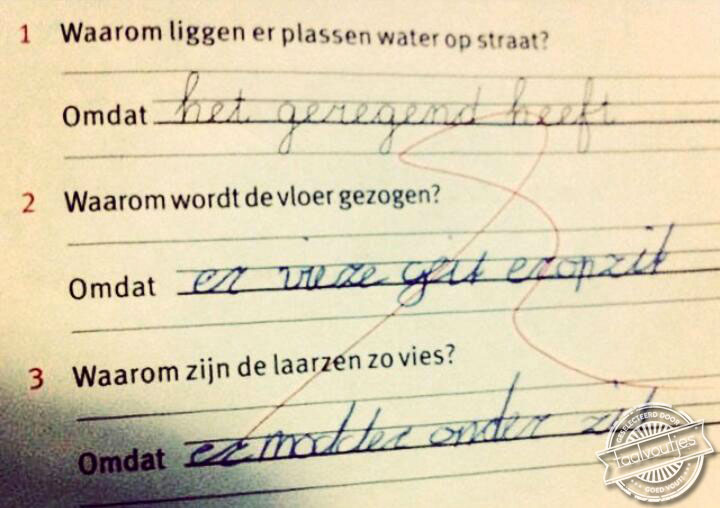 1 Waarom liggen er plassen water op straat?
Omdat het geregend heeft
2 Waarom wordt de vloer gezogen?
Omdat er vieze geit eropzit
3 Waarom zijn de laarzen zo vies?
Omdat er modder onder zit
GESELECTEERD DOOR
taalvoutjes